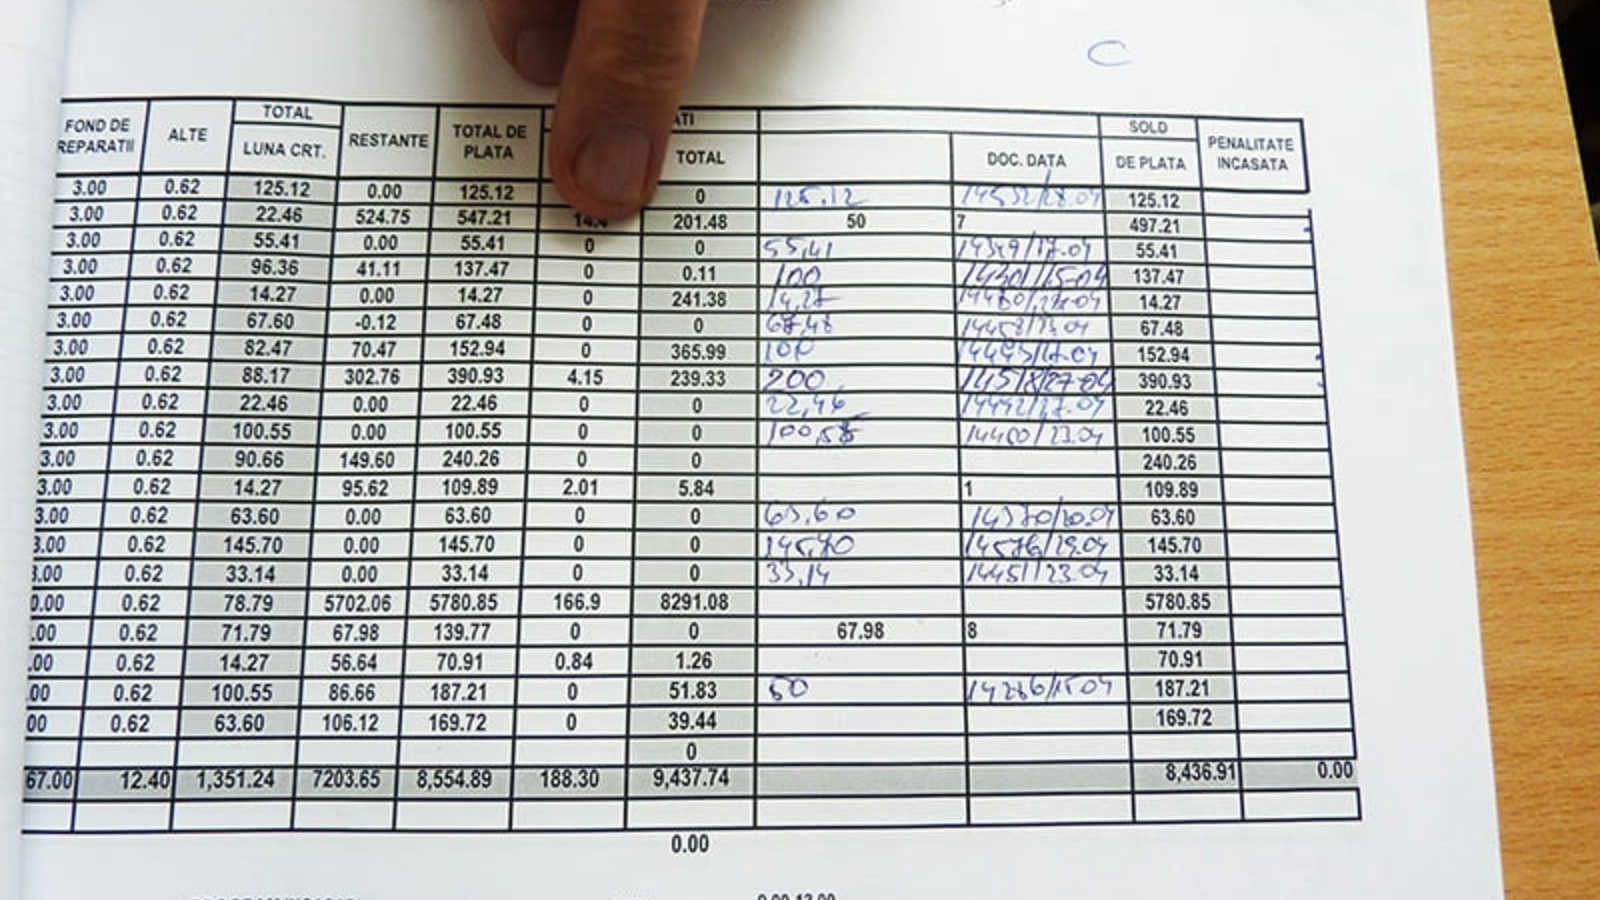 C
FOND DE REPARATII ALTE TOTAL LUNA CRT. RESTANTE TOTAL DE PLATA ATI TOTAL DOC. DATA SOLD DE PLATA PENALITATE INCASATA
3.00 0.62 125.12 0.00 125.12 0 125.12 14532/28.04 125.12
3.00 0.62 22.46 524.75 547.21 14.4 201.48 50 7 497.21
3.00 0.62 55.41 0.00 55.41 0 0 55,41 14349/17.04 55.41
3.00 0.62 96.36 41.11 137.47 0 0.11 100 137.47
3.00 0.62 14.27 0.00 14.27 0 241.38 14,27 14.27
3.00 0.62 67.60 -0.12 67.48 0 0 67,48 67.48
3.00 0.62 82.47 70.47 152.94 0 365.99 100 152.94
3.00 0.62 88.17 302.76 390.93 4.15 239.33 200 14518/27-04 390.93
3.00 0.62 22.46 0.00 22.46 0 0 22,46 22.46
3.00 0.62 100.55 0.00 100.55 0 0 100,55 14460/23.04 100.55
3.00 0.62 90.66 149.60 240.26 0 0 240.26
3.00 0.62 14.27 95.62 109.89 2.01 5.84 1 109.89
3.00 0.62 63.60 0.00 63.60 0 0 63,60 14370/20.04 63.60
3.00 0.62 145.70 0.00 145.70 0 0 145,70 14576/29.04 145.70
3.00 0.62 33.14 0.00 33.14 0 0 33,14 14451/23.04 33.14
0.00 0.62 78.79 5702.06 5780.85 166.9 8291.08 5780.85
.00 0.62 71.79 67.98 139.77 0 0 67.98 8 71.79
.00 0.62 14.27 56.64 70.91 0.84 1.26 70.91
00 0.62 100.55 86.66 187.21 0 51.83 50 14286/15.04 187.21
00 0.62 63.60 106.12 169.72 0 39.44 169.72
0
67.00 12.40 1,351.24 7203.65 8,554.89 188.30 9,437.74 8,436.91 0.00
0.00